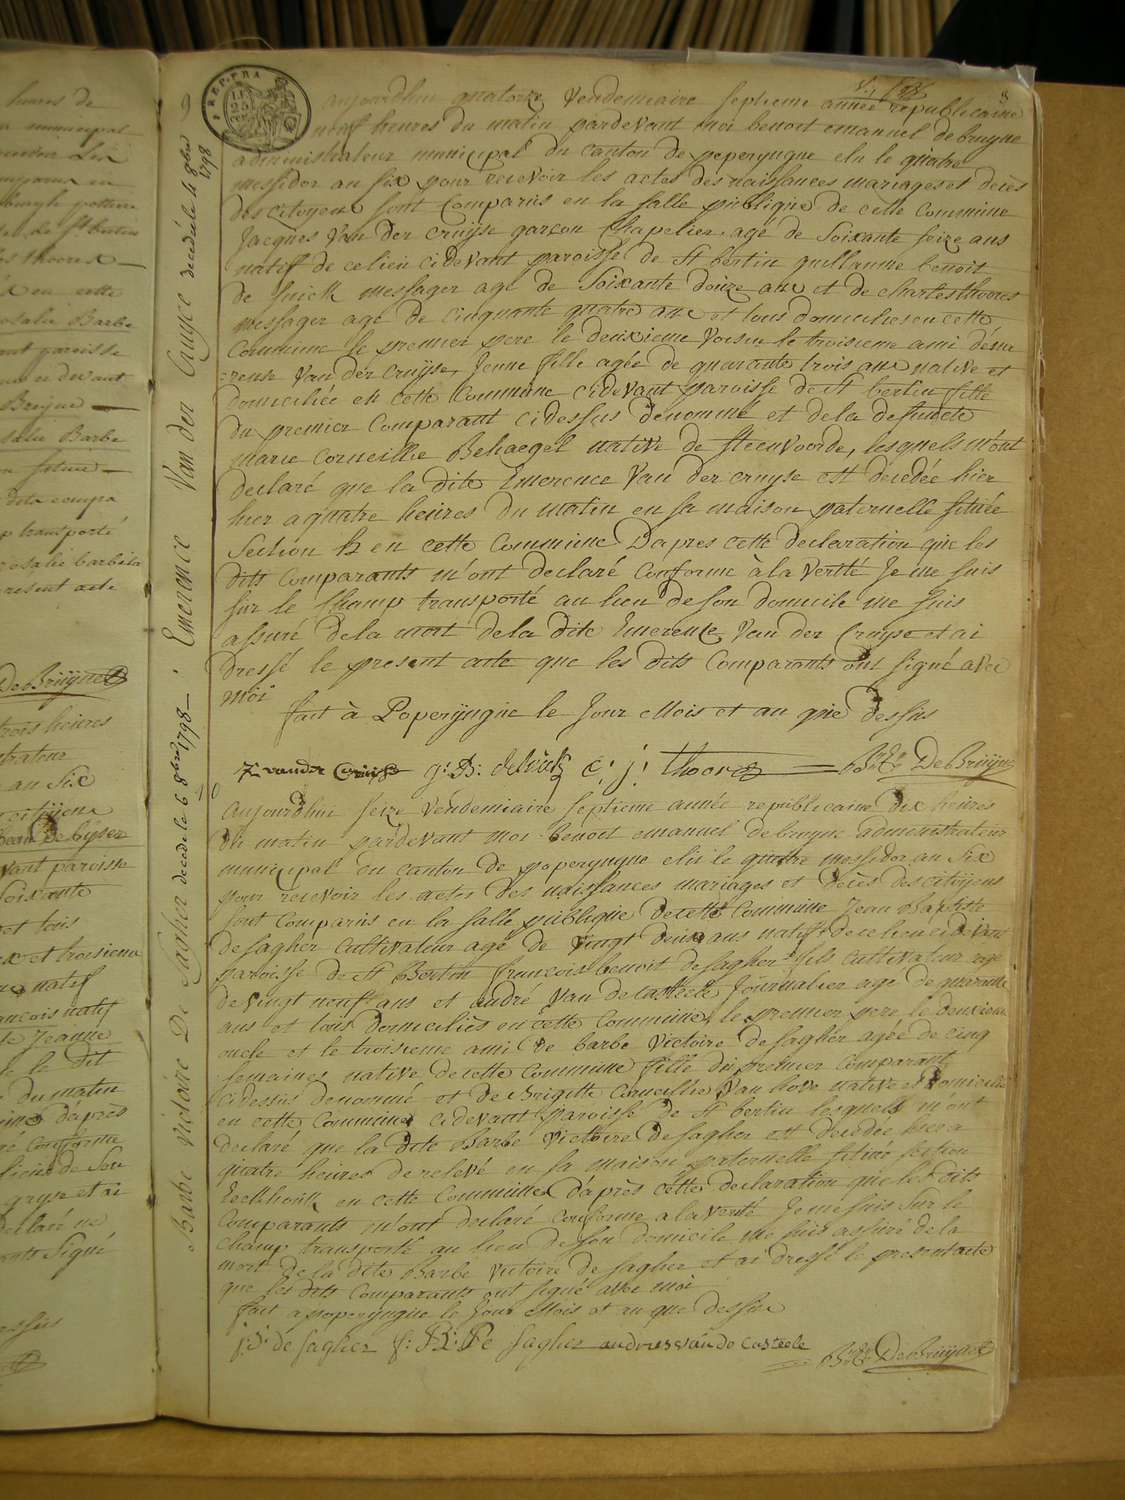 heures de
municipal
pottier
de St bertin
en cette
Rosalie Barbe
paroisse
ci devant
De Bruyne
Rosalie Barbe
dits compa
transporté
rosalie barbe
present acte
DeBruyne
trois heures
an Six
citijens
vant paroisse
Soixante
et tous
et troisieme
natif
francois natif
de Jeanne
le dit
du matin
daprès
Conforme
gryse et ai
declaré ne
Signé
9
Emerence Van der Cruyce decedée le 4 8bre 1798
REP. FRA
8
aujourdhui quatorze Vendemiaire septieme année republicaine
neuf heures du matin pardevant moi benoit emanuel debruyne
administrateur municipal du canton de poperyngue elu le quatre
messidor an six pour recevoir les actes des naissances mariages et decès
des citoyens sont Comparus en la salle publique de cette Commune
Jacques Van der Cruijse garçon Chapelier agé de Soixante seize ans
natif de celieu cidevant paroisse de St bertin guillaume benoit
de messager agé de Soixante douze ans et de charles thoores
messager agé de Cinquante quatre ans et tous domiciliés en cette
Commune le premier pere le deuxieme Voisin le troisieme ami déme
rence Van der Cruijse, Jeune fille agée de quarante trois ans native et
domiciliée en cette Commune cidevant paroisse de St bertin fille
du premier Comparant cidessus denommé et dela defuncte
marie Corneillie Behaegel native de Steenvoorde, lesquels m'ont
declaré que la dite Emerence Van der cruyse est décedée hier
hier a quatre heures du matin en sa maison paternelle située
Section h en cette Commune Dapres cette declaration que les
dits Comparants m'ont declaré Conforme à la verité Je me suis
sur le Champ transporté au lieu de son domicile me suis
assuré dela mort dela dite Emerence Van der Cruyse et ai
dressé le present acte que les dits Comparants ont signé avec
moi
fait à Poperijngue le Jour Mois et an que dessus
vander Cruise g: B: c: j: thoores Bt E DeBruijne
10
Barbe Victoire De Sagher decedé le 6 8bre 1798
aujourdhui seize Vendemiaire septieme année republicaine dix heures
du matin pardevant moi benoit emanuel debruyne administrateur
municipal du canton de poperyngue elu le quatre messidor an Six
pour recevoir les actes des naissances mariages et decès des citoyens
sont Comparus en la salle publique decette Commune Jean Baptiste
desagher Cultivateur agé de vingt deux ans natif de celieu cidevant
paroisse de St Bertin francois benoit desagher fils cultivateur agé
de vingt neuf ans et andré Van de casteele Journalier agé de quarante
ans et tous domiciliés en cette Commune, le premier pere le deuxieme
oncle et le troisieme ami de barbe victoire de Sagher agée de cinq
semaines native decette Commune fille du premier Comparant
cidessus denommé et de Brigitte Corneillie Van hove native et domiciliée
en cette Commune cidevant paroisse de St bertin lesquels m'ont
declaré que la dite Barbe Victoire de Sagher est decedée hier a
quatre heures de relevé en sa maison paternelle située section
Eeckhouk en cette Commune d'après cette declaration que les dits
Comparants m'ont declaré conforme a la verité Je me suis sur le
Champ transporté au lieu de son domicile me suis assuré de la
mort de la dite Barbe Victoire de sagher et ai dressé le present acte
que les dits Comparants ont signé avec moi
fait a poperyngue le Jour Mois et an que dessus
j: b: de sagher f: B: De Sagher andries van de Casteele
Bt E DeBruijne